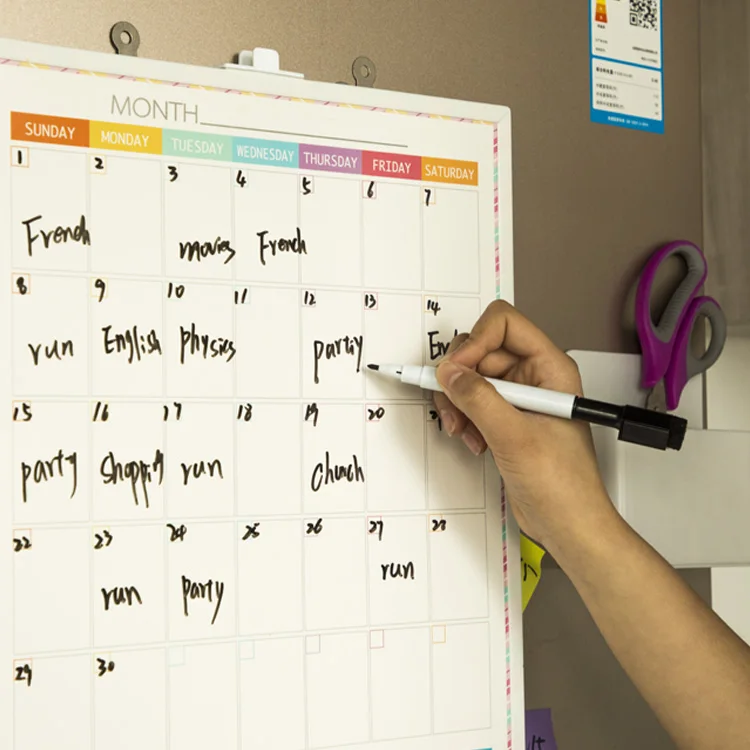 MONTH
SUNDAY MONDAY TUESDAY WEDNESDAY THURSDAY FRIDAY SATURDAY
1 2 3 4 5 6 7
French movies French
8 9 10 11 12 13 14
run English physics partiy
15 16 17 18 19 20
party Shopping run Church
22 23 24 25 26 27 28
run party run
29 30